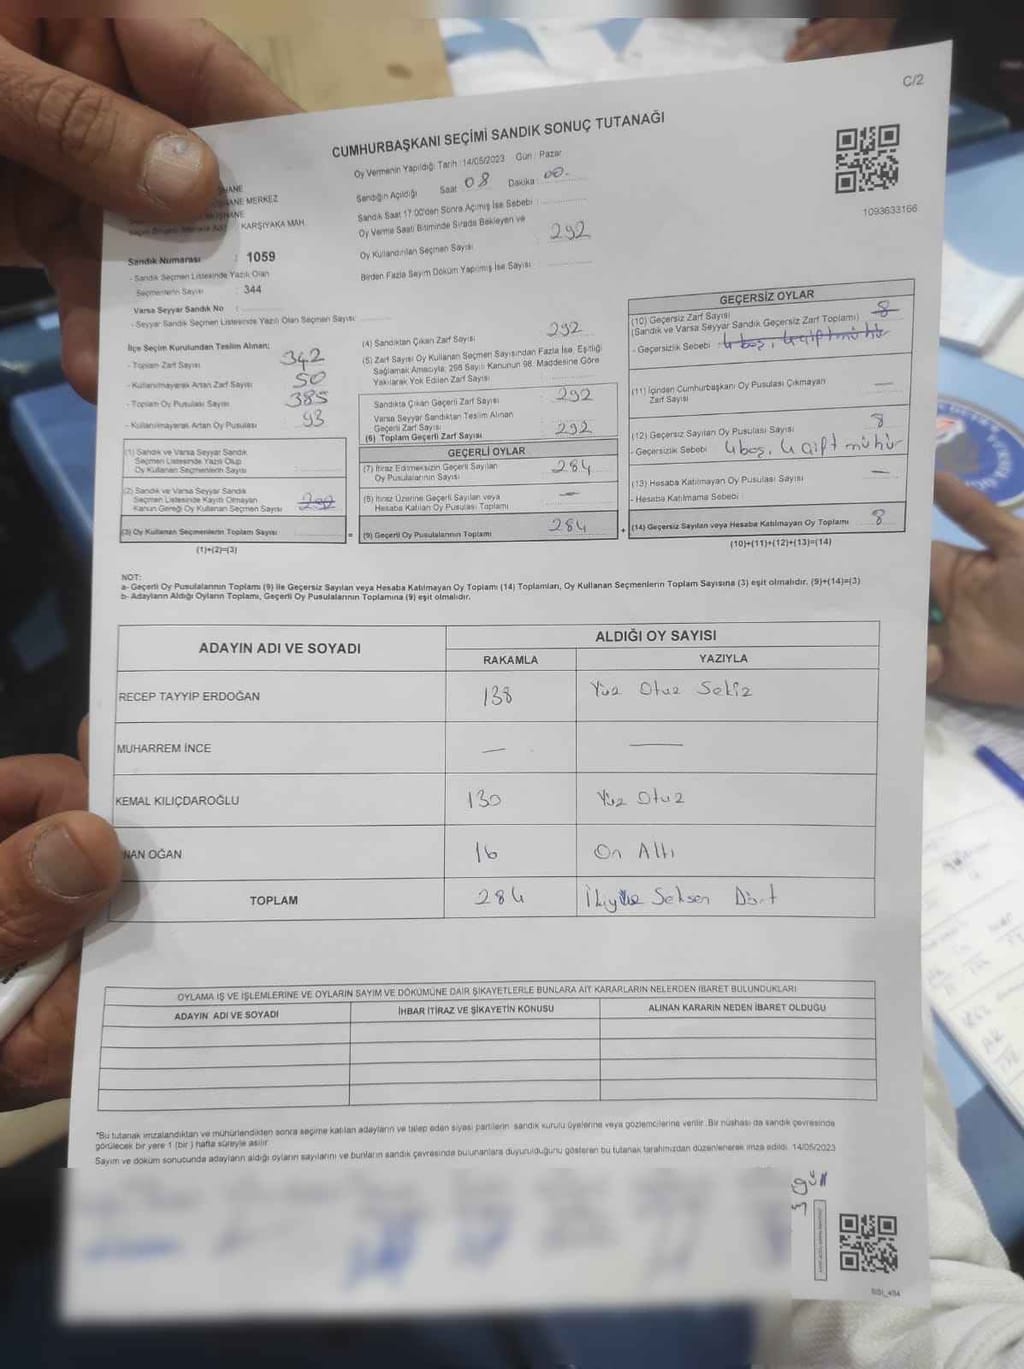 C/2
CUMHURBAŞKANI SEÇİMİ SANDIK SONUÇ TUTANAĞI
Oy Vermenin Yapıldığı Tarih :14/05/2023 Gün : Pazar
Sandığın Açıldığı Saat 08 Dakika : 00
Sandık Saat 17:00'den Sonra Açılmış İse Sebebi :
Oy Verme Saati Bitiminde Sırada Bekleyen ve
Oy Kullandırılan Seçmen Sayısı 292
Birden Fazla Sayım Döküm Yapılmış İse Sayısı
1093633166
HANE
HANE MERKEZ
HANE
KARŞIYAKA MAH.
Sandık Numarası : 1059
- Sandık Seçmen Listesinde Yazılı Olan
Seçmenlerin Sayısı : 344
Varsa Seyyar Sandık No :
- Seyyar Sandık Seçmen Listesinde Yazılı Olan Seçmen Sayısı
İlçe Seçim Kurulundan Teslim Alınan;
- Toplam Zarf Sayısı 342
- Kullanılmayarak Artan Zarf Sayısı 50
- Toplam Oy Pusulası Sayısı 385
- Kullanılmayarak Artan Oy Pusulası 93
(1) Sandık ve Varsa Seyyar Sandık
Seçmen Listesinde Yazılı Olup
Oy Kullanan Seçmenlerin Sayısı
(2) Sandık ve Varsa Seyyar Sandık
Seçmen Listesinde Kayıtlı Olmayan
Kanun Gereği Oy Kullanan Seçmen Sayısı
(3) Oy Kullanan Seçmenlerin Toplam Sayısı
(1)+(2)=(3)
=
(4) Sandıktan Çıkan Zarf Sayısı 292
(5) Zarf Sayısı Oy Kullanan Seçmen Sayısından Fazla İse, Eşitliği
Sağlamak Amacıyla; 298 Sayılı Kanunun 98. Maddesine Göre
Yakılarak Yok Edilen Zarf Sayısı
Sandıkta Çıkan Geçerli Zarf Sayısı 292
Varsa Seyyar Sandıktan Teslim Alınan
Geçerli Zarf Sayısı
(6) Toplam Geçerli Zarf Sayısı 292
GEÇERLİ OYLAR
(7) İtiraz Edilmeksizin Geçerli Sayılan
Oy Pusulalarının Sayısı 284
(8) İtiraz Üzerine Geçerli Sayılan veya
Hesaba Katılan Oy Pusulası Toplamı —
(9) Geçerli Oy Pusulalarının Toplamı 284
+
GEÇERSİZ OYLAR
(10) Geçersiz Zarf Sayısı 8
(Sandık ve Varsa Seyyar Sandık Geçersiz Zarf Toplamı)
- Geçersizlik Sebebi : 4 boş, 4 çift mühür
(11) İçinden Cumhurbaşkanı Oy Pusulası Çıkmayan
Zarf Sayısı —
(12) Geçersiz Sayılan Oy Pusulası Sayısı 8
- Geçersizlik Sebebi 4 boş, 4 çift mühür
(13) Hesaba Katılmayan Oy Pusulası Sayısı —
- Hesaba Katılmama Sebebi
(14) Geçersiz Sayılan veya Hesaba Katılmayan Oy Toplamı 8
(10)+(11)+(12)+(13)=(14)
NOT:
a- Geçerli Oy Pusulalarının Toplamı (9) ile Geçersiz Sayılan veya Hesaba Katılmayan Oy Toplamı (14) Toplamları, Oy Kullanan Seçmenlerin Toplam Sayısına (3) eşit olmalıdır. (9)+(14)=(3)
b- Adayların Aldığı Oyların Toplamı, Geçerli Oy Pusulalarının Toplamına (9) eşit olmalıdır.
ADAYIN ADI VE SOYADI ALDIĞI OY SAYISI
RAKAMLA YAZIYLA
RECEP TAYYİP ERDOĞAN 138 Yüz Otuz Sekiz
MUHARREM İNCE — —
KEMAL KILIÇDAROĞLU 130 Yüz Otuz
NAN OĞAN 16 On Altı
TOPLAM 284 İkiyüz Seksen Dört
OYLAMA İŞ VE İŞLEMLERİNE VE OYLARIN SAYIM VE DÖKÜMÜNE DAİR ŞİKAYETLERLE BUNLARA AİT KARARLARIN NELERDEN İBARET BULUNDUKLARI
ADAYIN ADI VE SOYADI İHBAR İTİRAZ VE ŞİKAYETİN KONUSU ALINAN KARARIN NEDEN İBARET OLDUĞU
*Bu tutanak imzalandıktan ve mühürlendikten sonra seçime katılan adayların ve talep eden siyasi partilerin sandık kurulu üyelerine veya gözlemcilerine verilir. Bir nüshası da sandık çevresinde
görülecek bir yere 1 (bir) hafta süreyle asılır.
Sayım ve döküm sonucunda adayların aldığı oyların sayılarını ve bunların sandık çevresinde bulunanlara duyurulduğunu gösteren bu tutanak tarafımızdan düzenlenerek imza edildi. 14/05/2023